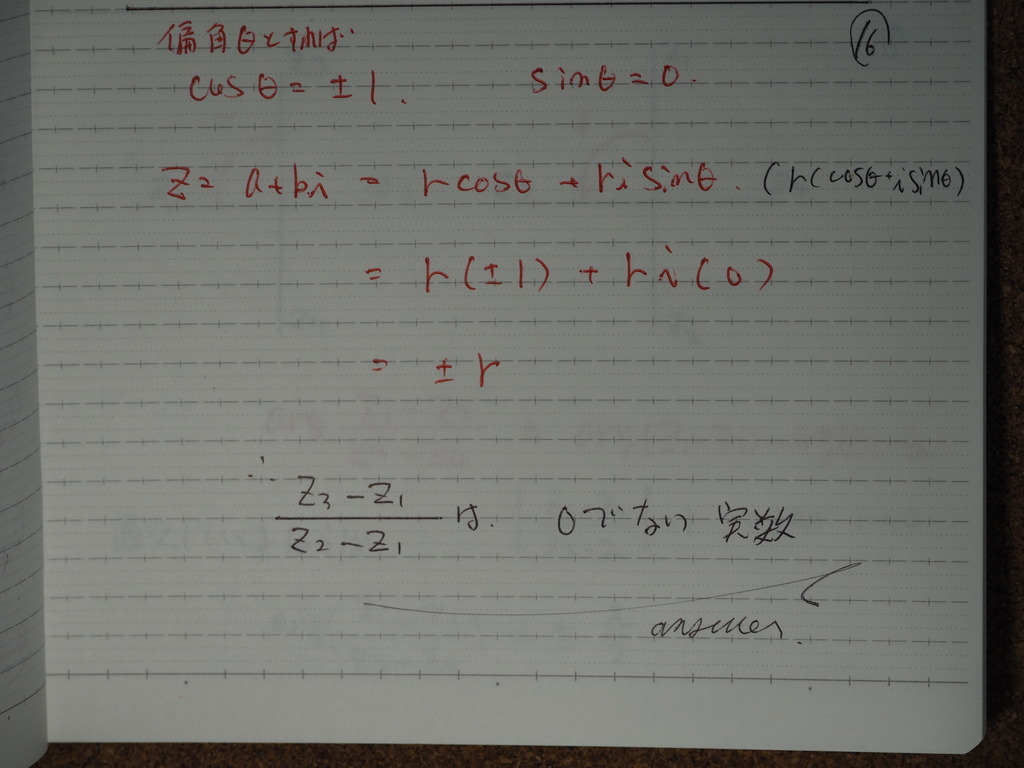 偏角θとすれば
⑯
cosθ = ±1. sinθ = 0.
Z = a+bi = rcosθ + ri sinθ. (r(cosθ+i sinθ)
= r(±1) + ri(0)
= ±r
∴ Z₃-Z₁ / Z₂-Z₁ は. 0でない 実数
answer.